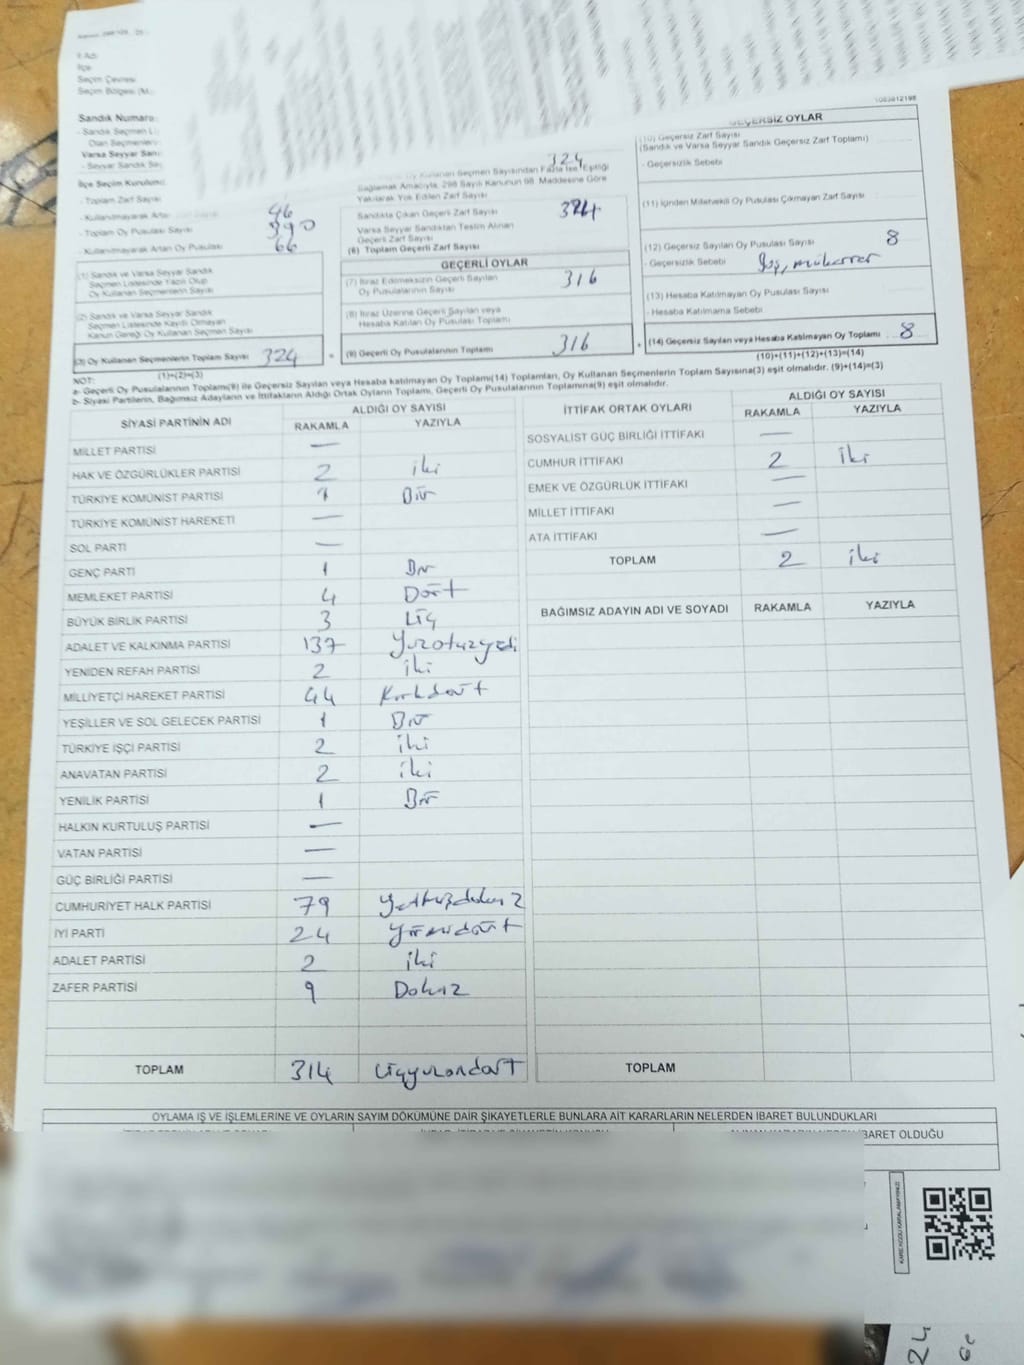 İl Adı
İlçe
Seçim Çevresi
Seçim Bölgesi (M.
1083812198
Sandık Numara
- Sandık Seçmen Li
Olan Seçmenleri
Varsa Seyyar San
- Seyyar Sandık Se
İlçe Seçim Kurulunc
- Toplam Zarf Sayısı
- Kullanılmayarak Artan Zarf Sayısı 96
- Toplam Oy Pusulası Sayısı 390
- Kullanılmayarak Artan Oy Pusulası 66
(1) Sandık ve Varsa Seyyar Sandık
Seçmen Listesinde Yazılı Olup
Oy Kullanan Seçmenlerin Sayısı
(2) Sandık ve Varsa Seyyar Sandık
Seçmen Listesinde Kayıtlı Olmayan
Kanun Gereği Oy Kullanan Seçmen Sayısı
(3) Oy Kullanan Seçmenlerin Toplam Sayısı 324
(1)+(2)=(3)
324
Oy Kullanan Seçmen Sayısından Fazla İse Eşitliği
Sağlamak Amacıyla, 298 Sayılı Kanunun 98. Maddesine Göre
Yakılarak Yok Edilen Zarf Sayısı
Sandıkta Çıkan Geçerli Zarf Sayısı 324
Varsa Seyyar Sandıktan Teslim Alınan
Geçerli Zarf Sayısı
(6) Toplam Geçerli Zarf Sayısı
GEÇERLİ OYLAR
(7) İtiraz Edilmeksizin Geçerli Sayılan
Oy Pusulalarının Sayısı 316
(8) İtiraz Üzerine Geçerli Sayılan veya
Hesaba Katılan Oy Pusulası Toplamı
= (9) Geçerli Oy Pusulalarının Toplamı 316
GEÇERSİZ OYLAR
(10) Geçersiz Zarf Sayısı
(Sandık ve Varsa Seyyar Sandık Geçersiz Zarf Toplamı)
- Geçersizlik Sebebi
(11) İçinden Milletvekili Oy Pusulası Çıkmayan Zarf Sayısı
(12) Geçersiz Sayılan Oy Pusulası Sayısı 8
- Geçersizlik Sebebi Boş, mükerrer
(13) Hesaba Katılmayan Oy Pusulası Sayısı
- Hesaba Katılmama Sebebi
+ (14) Geçersiz Sayılan veya Hesaba Katılmayan Oy Toplamı 8
(10)+(11)+(12)+(13)=(14)
NOT:
a- Geçerli Oy Pusulalarının Toplamı(9) ile Geçersiz Sayılan veya Hesaba katılmayan Oy Toplamı(14) Toplamları, Oy Kullanan Seçmenlerin Toplam Sayısına(3) eşit olmalıdır. (9)+(14)=(3)
b- Siyasi Partilerin, Bağımsız Adayların ve İttifakların Aldığı Ortak Oyların Toplamı, Geçerli Oy Pusulalarının Toplamına(9) eşit olmalıdır.
SİYASİ PARTİNİN ADI ALDIĞI OY SAYISI
RAKAMLA YAZIYLA
MİLLET PARTİSİ —
HAK VE ÖZGÜRLÜKLER PARTİSİ 2 iki
TÜRKİYE KOMÜNİST PARTİSİ 1 Bir
TÜRKİYE KOMÜNİST HAREKETİ —
SOL PARTİ —
GENÇ PARTİ 1 Bir
MEMLEKET PARTİSİ 4 Dört
BÜYÜK BİRLİK PARTİSİ 3 Üç
ADALET VE KALKINMA PARTİSİ 137 Yüzotuzyedi
YENİDEN REFAH PARTİSİ 2 iki
MİLLİYETÇİ HAREKET PARTİSİ 44 Kırkdört
YEŞİLLER VE SOL GELECEK PARTİSİ 1 Bir
TÜRKİYE İŞÇİ PARTİSİ 2 iki
ANAVATAN PARTİSİ 2 iki
YENİLİK PARTİSİ 1 Bir
HALKIN KURTULUŞ PARTİSİ —
VATAN PARTİSİ —
GÜÇ BİRLİĞİ PARTİSİ —
CUMHURİYET HALK PARTİSİ 79 Yetmişdokuz
İYİ PARTİ 24 Yirmidört
ADALET PARTİSİ 2 iki
ZAFER PARTİSİ 9 Dokuz
TOPLAM 314 Üçyüzondört
İTTİFAK ORTAK OYLARI ALDIĞI OY SAYISI
RAKAMLA YAZIYLA
SOSYALİST GÜÇ BİRLİĞİ İTTİFAKI —
CUMHUR İTTİFAKI 2 İki
EMEK VE ÖZGÜRLÜK İTTİFAKI —
MİLLET İTTİFAKI —
ATA İTTİFAKI —
TOPLAM 2 iki
BAĞIMSIZ ADAYIN ADI VE SOYADI RAKAMLA YAZIYLA
TOPLAM
OYLAMA İŞ VE İŞLEMLERİNE VE OYLARIN SAYIM DÖKÜMÜNE DAİR ŞİKAYETLERLE BUNLARA AİT KARARLARIN NELERDEN İBARET BULUNDUKLARI
İBARET OLDUĞU
24